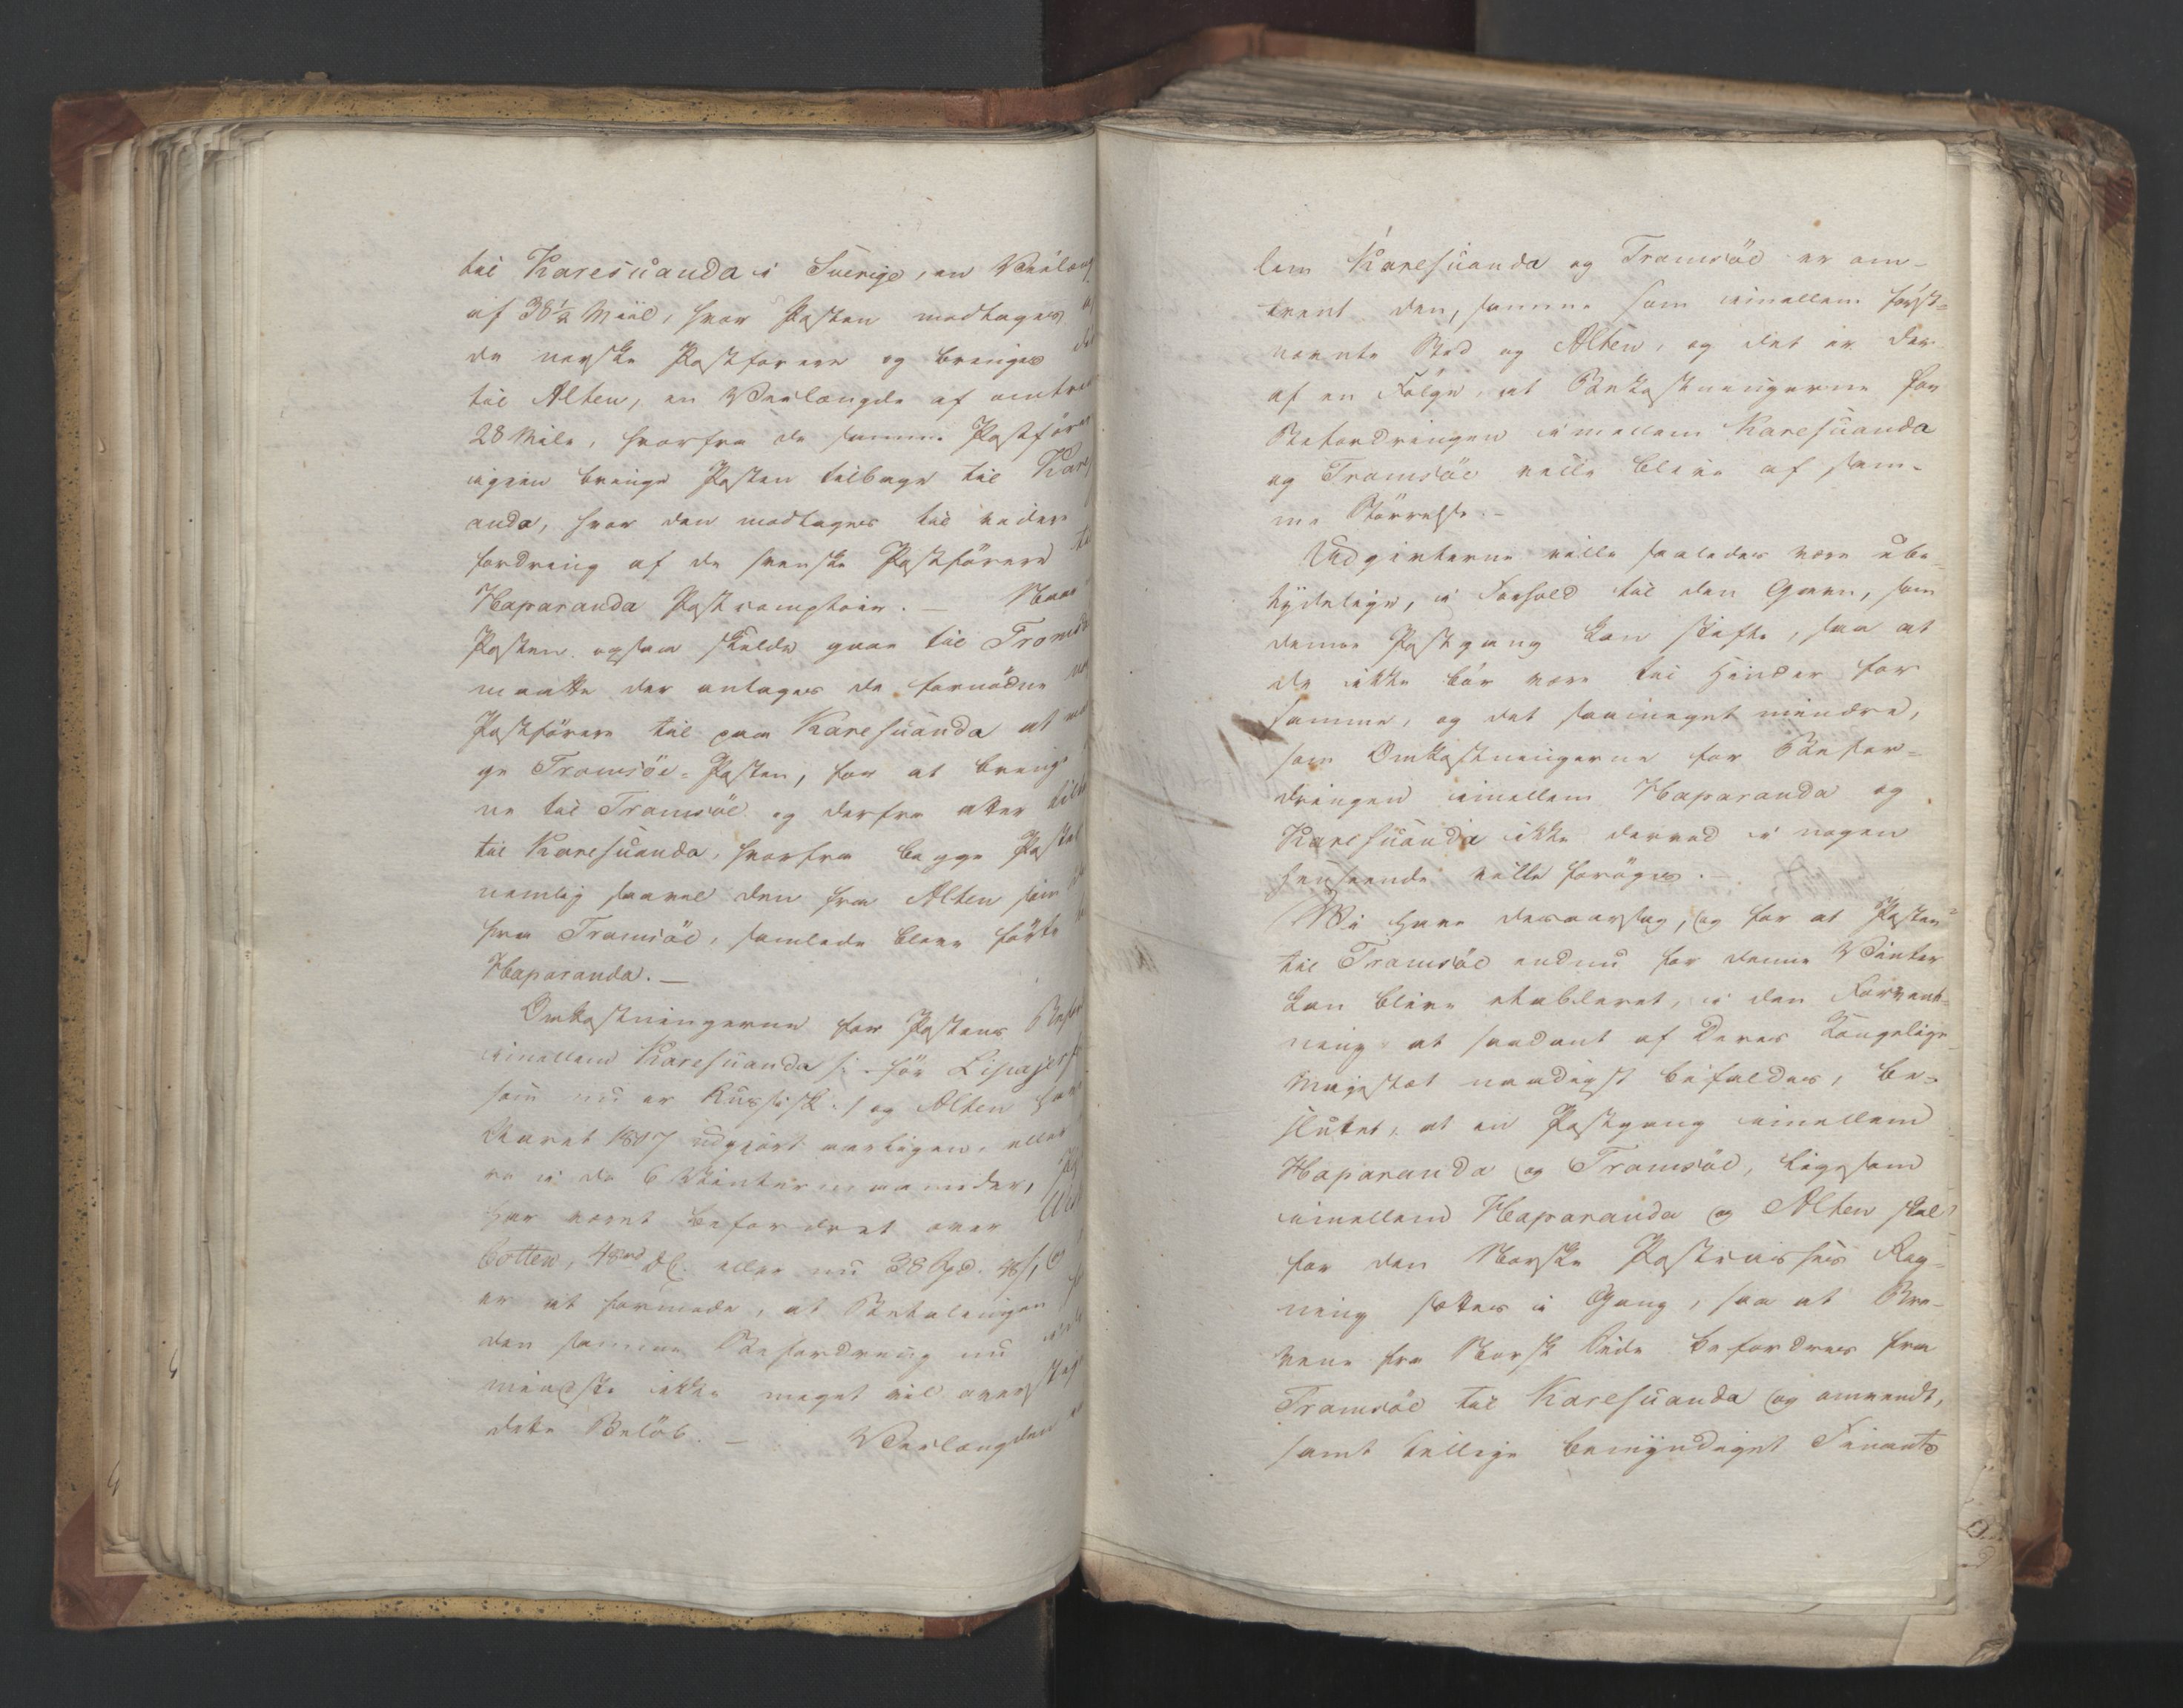 til Karesuanda i Sverige, en Veilæng
af 38½ Miil, hvor Posten modtages af
de norske Postførere og bringes
til Alten, en Veilængde af omtre
28 Mile, hvorfra de samme Postfører
igjen bringe Posten tilbage til Kares
anda, hvor den modtages til videre
fordring af de svenske Postførere til
Haparanda Postcomptoir. — Naar
Posten ogsaa skulde gaae til Tromsö
maatte der antages de fornødne
Postførere til paa Karesuanda at mod
ge Tromsöe-Posten, for at bringe
ne til Tromsöe og derfra atter tilba
til Karesuanda, hvorfra begge Poster
nemlig saavel den fra Alten som
fra Tromsöe, samlede bleve førte
Haparanda. —
Omkostningerne for Postens Befor
imellem Karesuanda /: før Lipajerf
som nu er Russisk :/ og Alten have
Aaret 1807 udgjort aarligen, eller
re i de 6 Vintermaaneder,
har været befordret over
botten, 48 eller nu 38 Spd. 48 ſ,
er at formode, at Betalingen for
den samme Befordring nu
mindste ikke meget vil overstige
dette Beløb. — Veilængden
lem Karesuanda og Tromsöe er om-
trent den samme som imellem først-
nævnte Sted og Alten, og det er der-
af en Følge, at Omkostningerne for
Befordringen imellem Karesuanda
og Tromsöe ville blive af sam-
me Størrelse. —
Udgivterne ville saaledes være ube-
tydelige, i Forhold til den Gavn, som
denne Postgang kan stifte, saa at
de ikke bør være til Hinder for
samme, og det saameget mindre,
som Omkostningerne for Befor-
dringen imellem Haparanda og
Karesuanda ikke derved i nogen
Henseende ville forøges. —
Vi have desaarsag, og for at Posten
til Tromsöe endnu for denne Vinter
kan blive etableret, i den Forvent-
ning at saadant af Deres Kongelige
Majestæt naadigst bifaldes, be-
sluttet, at en Postgang imellem
Haparanda og Tromsöe, ligesom
imellem Haparanda og Alten skal
for den Norske Postcasses Reg-
ning sættes i Gang, saa at Bre-
vene fra Norsk Side befordres fra
Tromsöe til Karesuanda og omvendt,
samt tillige bemyndiget Finants